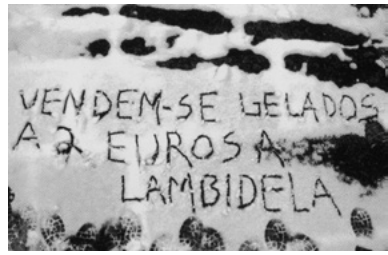 VENDEM-SE GELADOS
A 2 EUROS A
LAMBIDELA